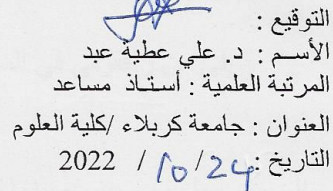 التوقيع :
الأســم : د. علي عطية عبد
المرتبة العلمية : أستاذ مساعد
العنوان : جامعة كربلاء /كلية العلوم
التاريخ : 24/ 10 / 2022